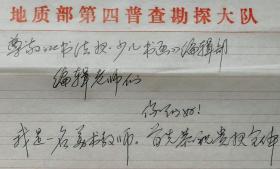 地质部第四普查勘探大队
尊敬的《书法报·少儿书画》编辑部
编辑老师们
你们好!
我是一名美术教师。首先恭祝贵报全体